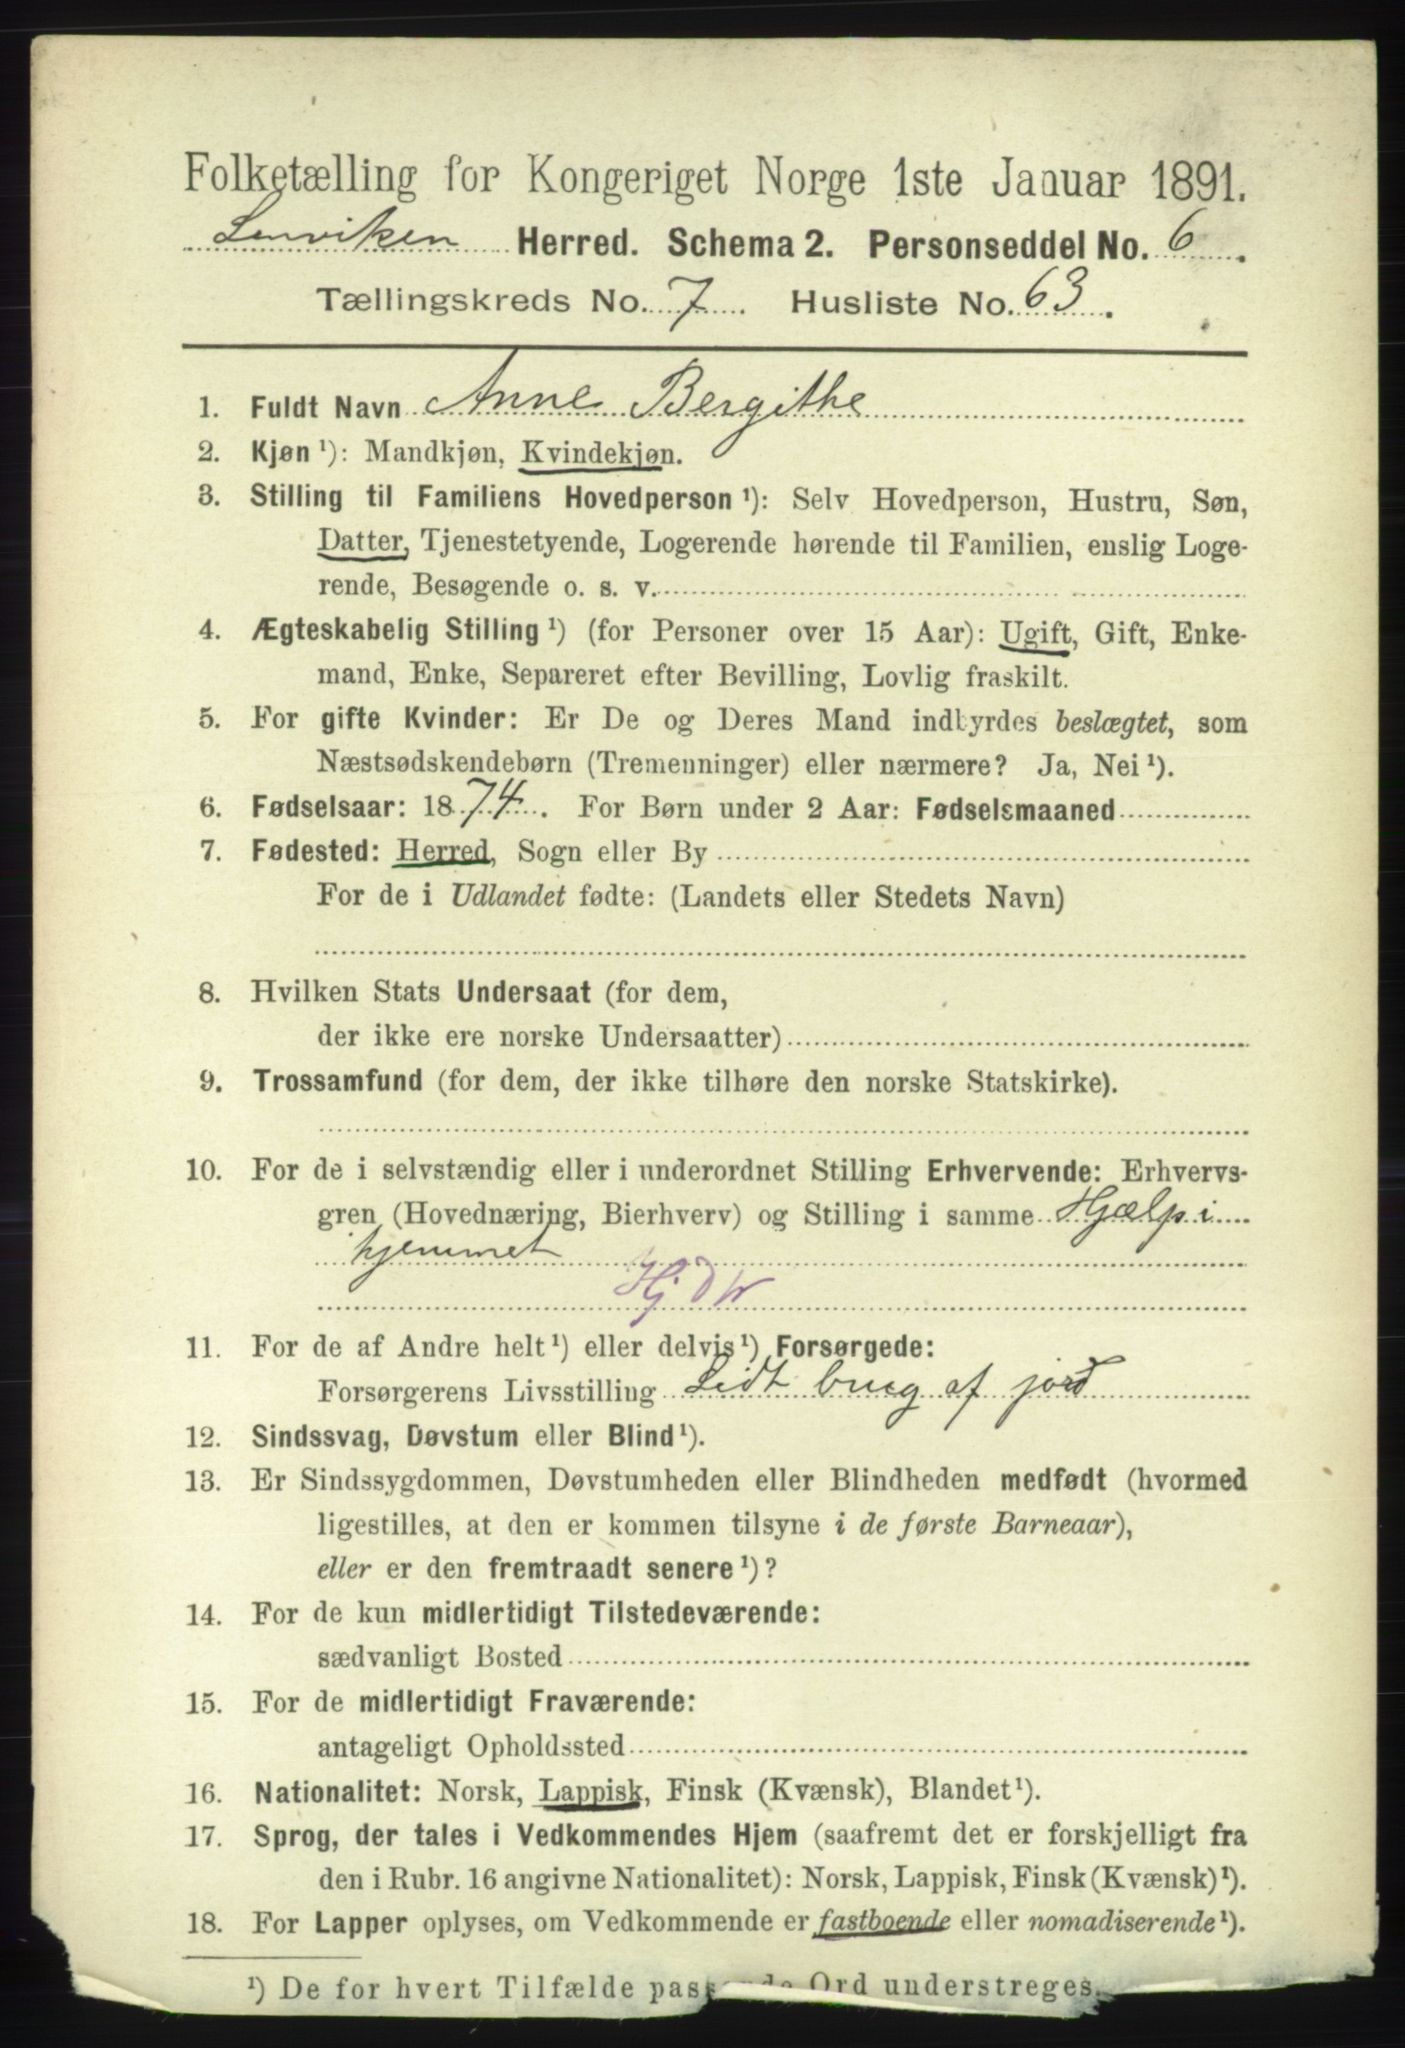 Folketælling for Kongeriget Norge 1ste Januar 1891.
Lenviken Herred. Schema 2. Personseddel No. 6.
Tællingskreds No. 7. Husliste No. 63.
1. Fuldt Navn Anne Bergithe
2. Kjøn ¹): Mandkjøn, Kvindekjøn.
3. Stilling til Familiens Hovedperson ¹): Selv Hovedperson, Hustru, Søn,
Datter, Tjenestetyende, Logerende hørende til Familien, enslig Loge-
rende, Besøgende o. s. v.
4. Ægteskabelig Stilling ¹) (for Personer over 15 Aar): Ugift, Gift, Enke-
mand, Enke, Separeret efter Bevilling, Lovlig fraskilt.
5. For gifte Kvinder: Er De og Deres Mand indbyrdes beslægtet, som
Næstsødskendebørn (Tremenninger) eller nærmere? Ja, Nei ¹).
6. Fødselsaar: 1874. For Børn under 2 Aar: Fødselsmaaned
7. Fødested: Herred, Sogn eller By
For de i Udlandet fødte: (Landets eller Stedets Navn)
8. Hvilken Stats Undersaat (for dem,
der ikke ere norske Undersaatter)
9. Trossamfund (for dem, der ikke tilhøre den norske Statskirke).
10. For de i selvstændig eller i underordnet Stilling Erhvervende: Erhvervs-
gren (Hovednæring, Bierhverv) og Stilling i samme Hjælp i
hjemmet
Hj d v
11. For de af Andre helt ¹) eller delvis ¹) Forsørgede:
Forsørgerens Livsstilling Lidt brug af jord
12. Sindssvag, Døvstum eller Blind ¹).
13. Er Sindssygdommen, Døvstumheden eller Blindheden medfødt (hvormed
ligestilles, at den er kommen tilsyne i de første Barneaar),
eller er den fremtraadt senere ¹)?
14. For de kun midlertidigt Tilstedeværende:
sædvanligt Bosted
15. For de midlertidigt Fraværende:
antageligt Opholdssted
16. Nationalitet: Norsk, Lappisk, Finsk (Kvænsk), Blandet ¹).
17. Sprog, der tales i Vedkommendes Hjem (saafremt det er forskjelligt fra
den i Rubr. 16 angivne Nationalitet): Norsk, Lappisk, Finsk (Kvænsk) ¹).
18. For Lapper oplyses, om Vedkommende er fastboende eller nomadiserende ¹).
¹) De for hvert Tilfælde passende Ord understreges.